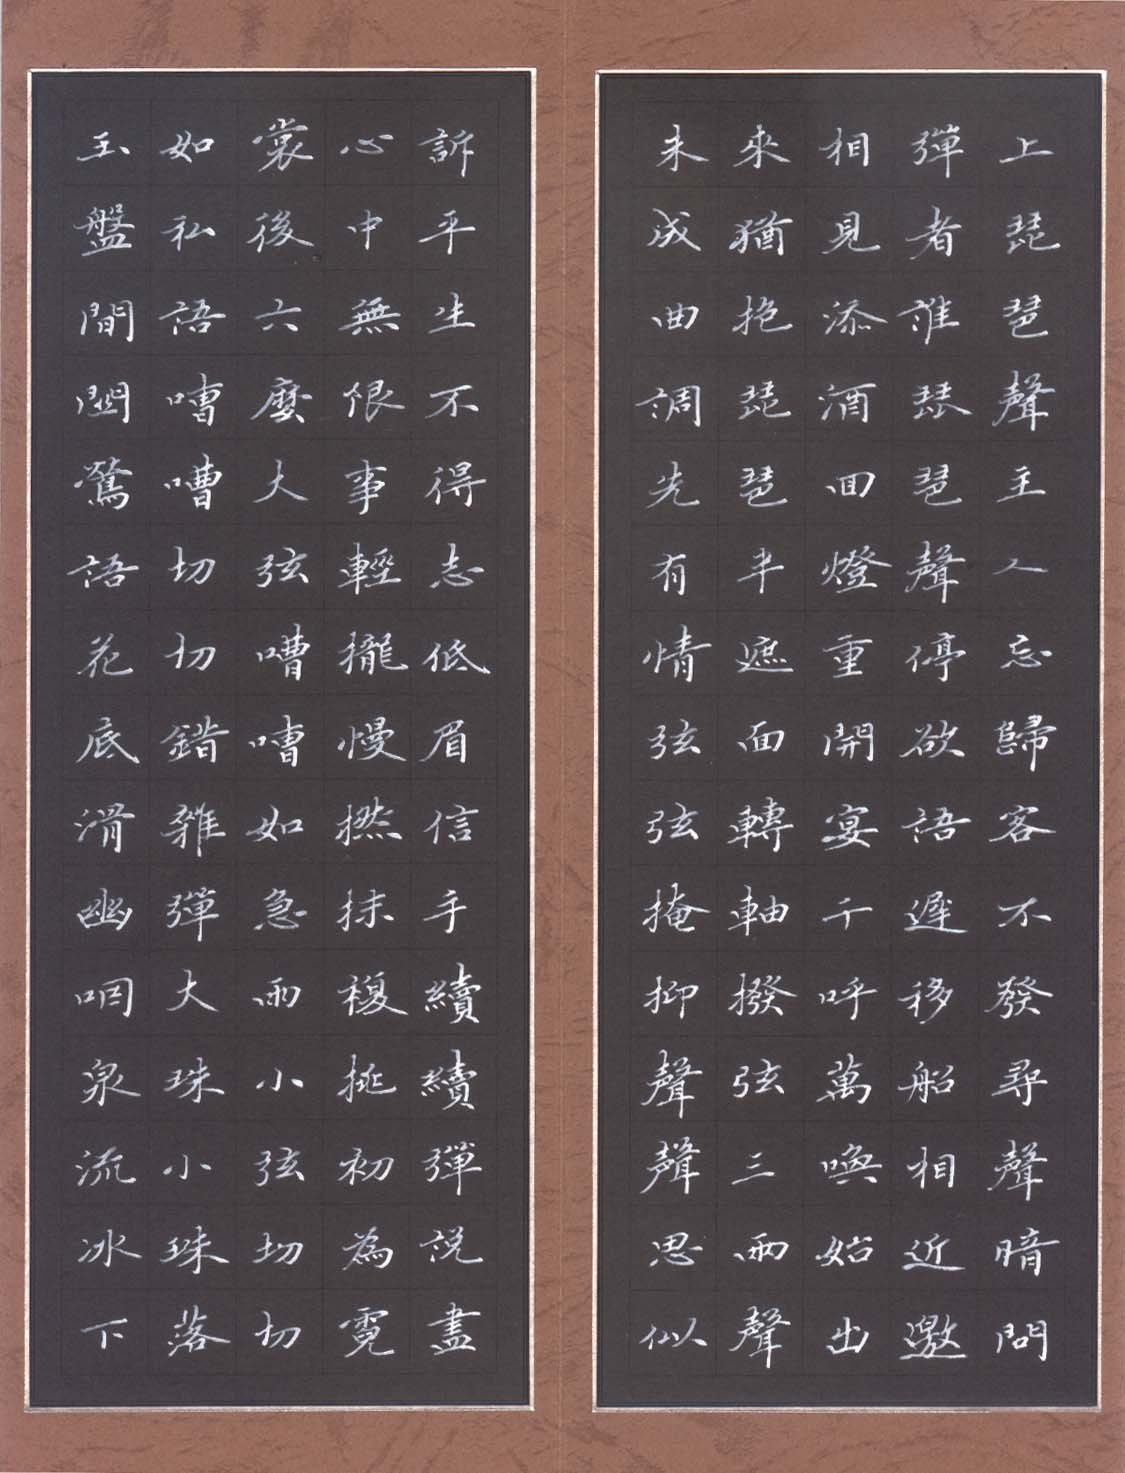 上琵琶聲主人忘歸客不發尋聲暗問
彈者誰琵琶聲停欲語遲移船相近邀
相見添酒回燈重開宴千呼萬喚始出
來猶抱琵琶半遮面轉軸撥弦三兩聲
未成曲調先有情弦弦掩抑聲聲思似
訴平生不得志低眉信手續續彈說盡
心中無恨事輕攏慢撚抹複挑初為霓
裳後六麼大弦嘈嘈如急雨小弦切切
如私語嘈嘈切切錯雜彈大珠小珠落
玉盤間關鶯語花底滑幽咽泉流冰下